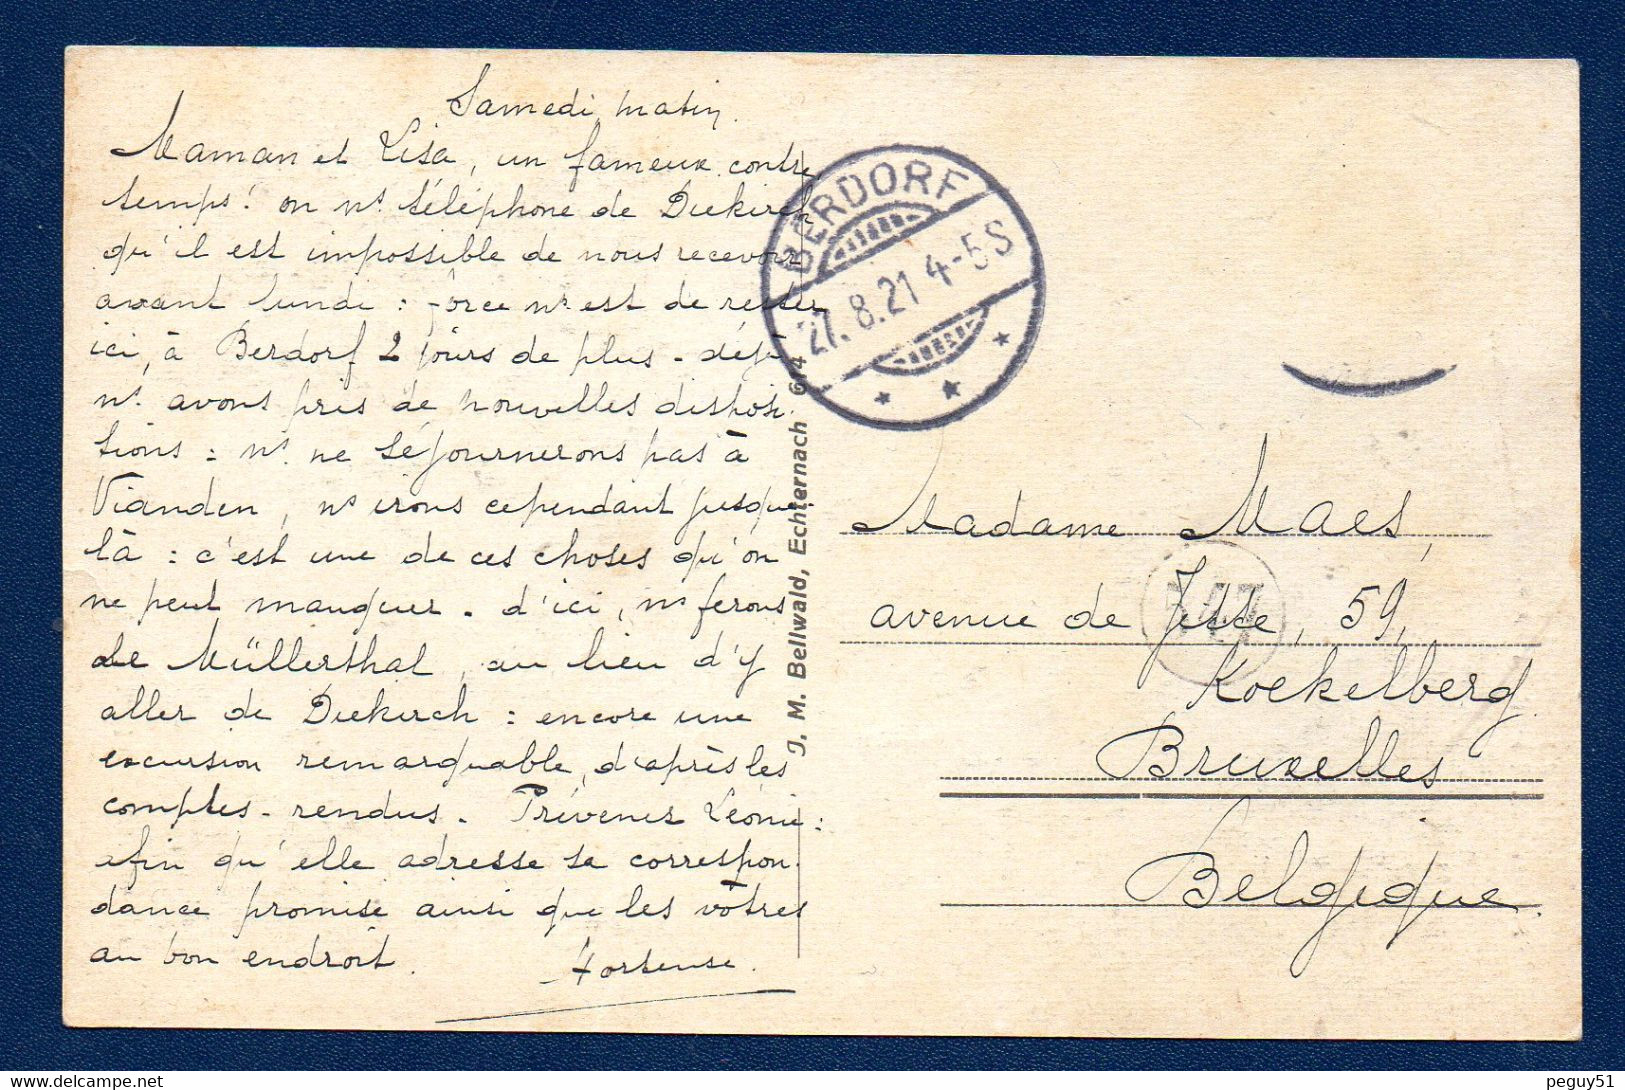 Samedi matin.
Maman et Lisa, un fameux contre
temps! on ns. téléphone de Diekirch
qu'il est impossible de nous recevoir
avant lundi : force ns. est de rester
ici, à Berdorf 2 jours de plus - déjà
ns. avons pris de nouvelles disposi-
tions : ns. ne séjournerons pas à
Vianden, ns irons cependant jusque
là : c'est une de ces choses qu'on
ne peut manquer - d'ici, ns ferons
le Müllerthal, au lieu d'y
aller de Diekirch : encore une
excursion remarquable, d'après les
comptes-rendus - Prévenez Léonie :
afin qu'elle adresse sa correspon-
dance promise ainsi que les vôtres
au bon endroit.
Hortense.
J. M. Bellwald, Echternach 614
BERDORF
27.8.21 4-5S
Madame Maes,
avenue de Jette, 59,
Koekelberg
Bruxelles
Belgique.
peguy51